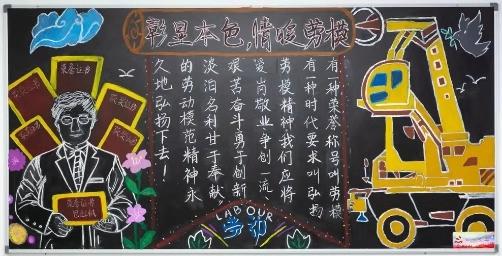 彰显本色,情劳模
有一种荣誉称号叫劳模
有一种时代要求叫弘扬
劳模精神我们应将
爱岗敬业争创一流、
艰苦奋斗勇于创新、
淡泊名利甘于奉献
的劳动模范精神永
久地弘扬下去！
荣誉证书
荣誉证书
LABOUR